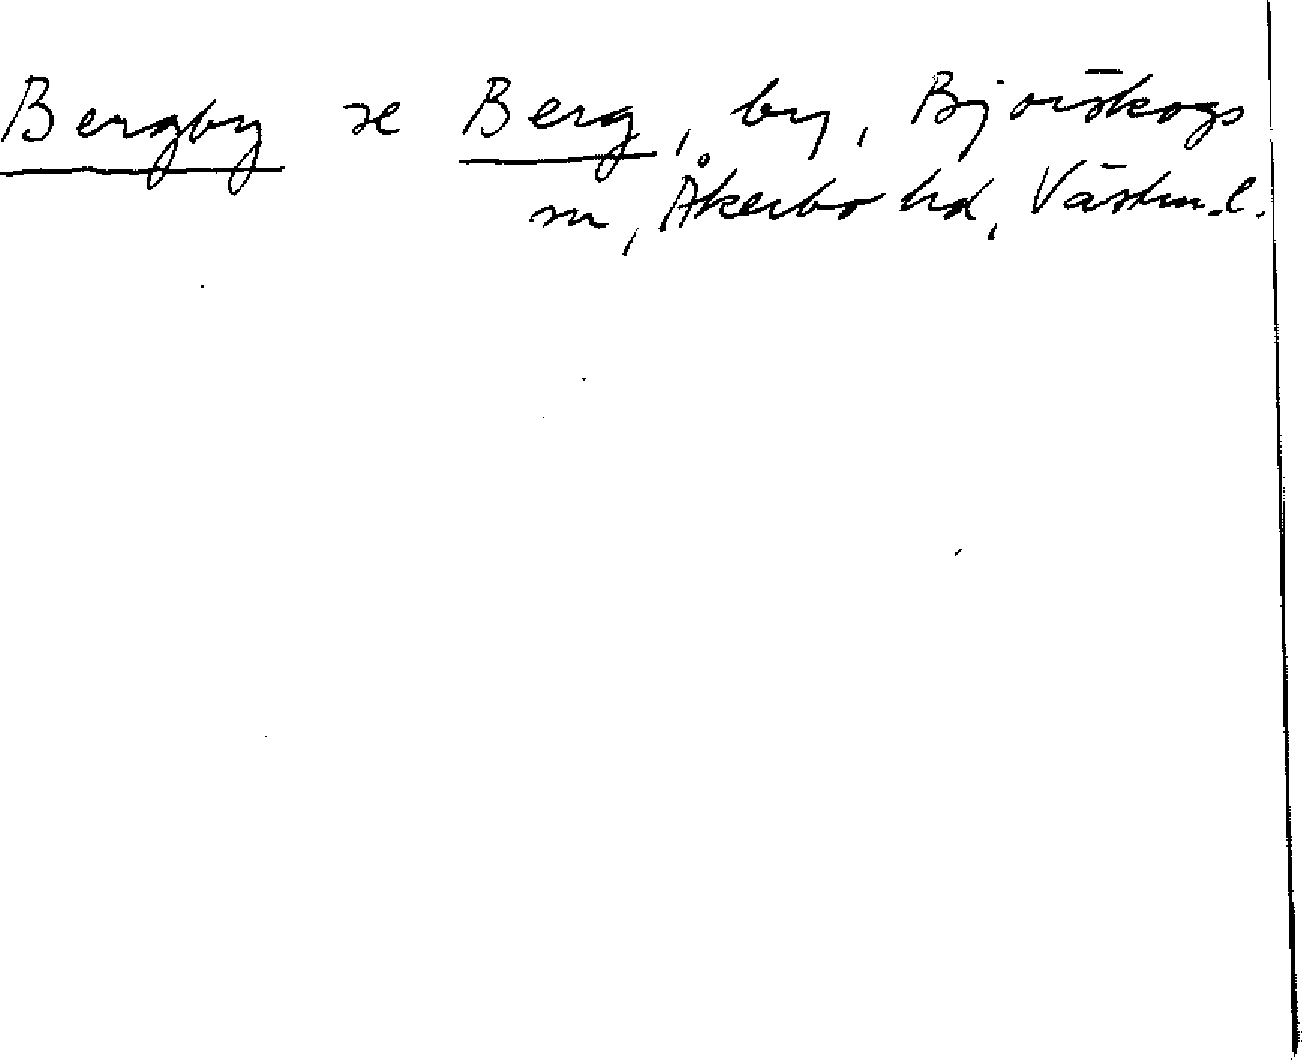 Bergby se Berg, by, Björskogs
sn, Åkerbo hd, Västm. l.